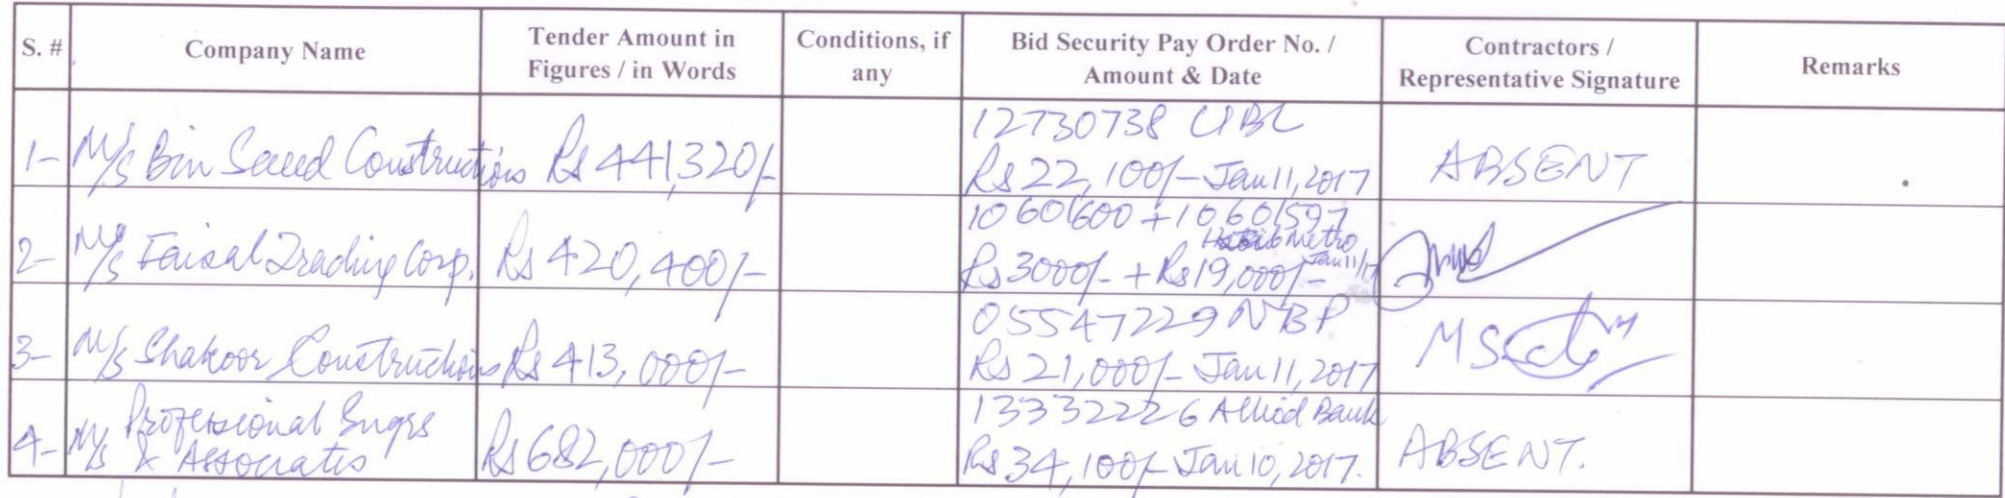 S. # Company Name Tender Amount in Figures / in Words Conditions, if any Bid Security Pay Order No. / Amount & Date Contractors / Representative Signature Remarks
1- M/s Bin Saeed Constructions Rs 441,320/- 12730738 UBL
Rs 22,100/- Jan 11, 2017 ABSENT
2- M/s Faisal Trading Corp. Rs 420,400/- 10601600 + 10601597
Habib Metro
Rs 3000/- + Rs 19,000/- Jan 11/17
3- M/s Shakoor Constructions Rs 413,000/- 05547229 NBP
Rs 21,000/- Jan 11, 2017
4- M/s Professional Engrs
& Associates Rs 682,000/- 13332226 Allied Bank
Rs 34,100/- Jan 10, 2017. ABSENT.